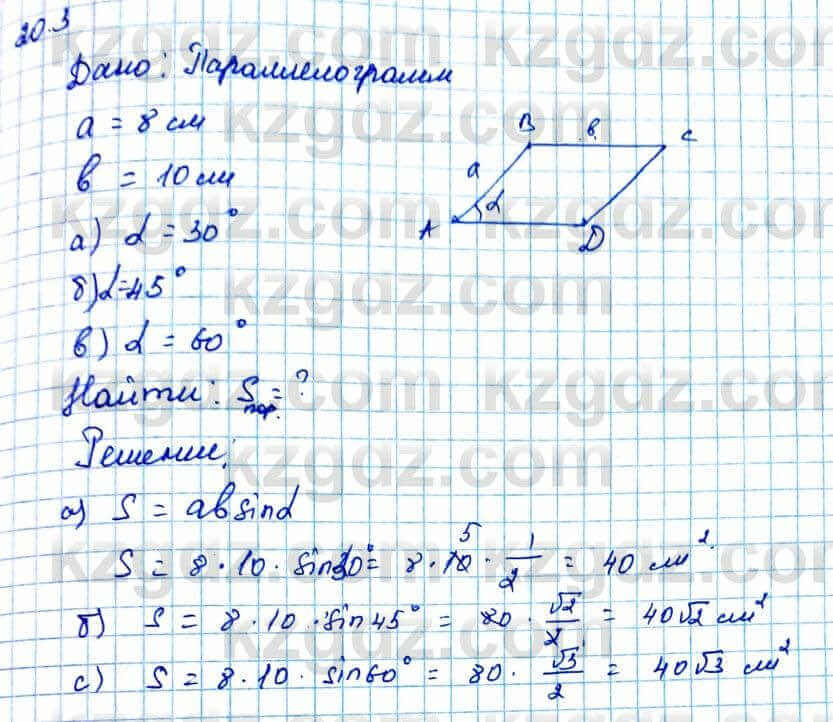 20.3
Дано: Параллелограмм
a = 8 см
b = 10 см
а) α = 30°
б) α = 45°
в) α = 60°
B в C
a
A α D
Найти: Sпар. = ?
Решение:
а) S = ab sinα
S = 8 · 10 · sin30° = 8 · 10 5 · 1/2 = 40 см²
б) S = 8 · 10 · sin45° = 80 · √2/2 = 40√2 см²
с) S = 8 · 10 · sin60° = 80 · √3/2 = 40√3 см²
kzgdz.com